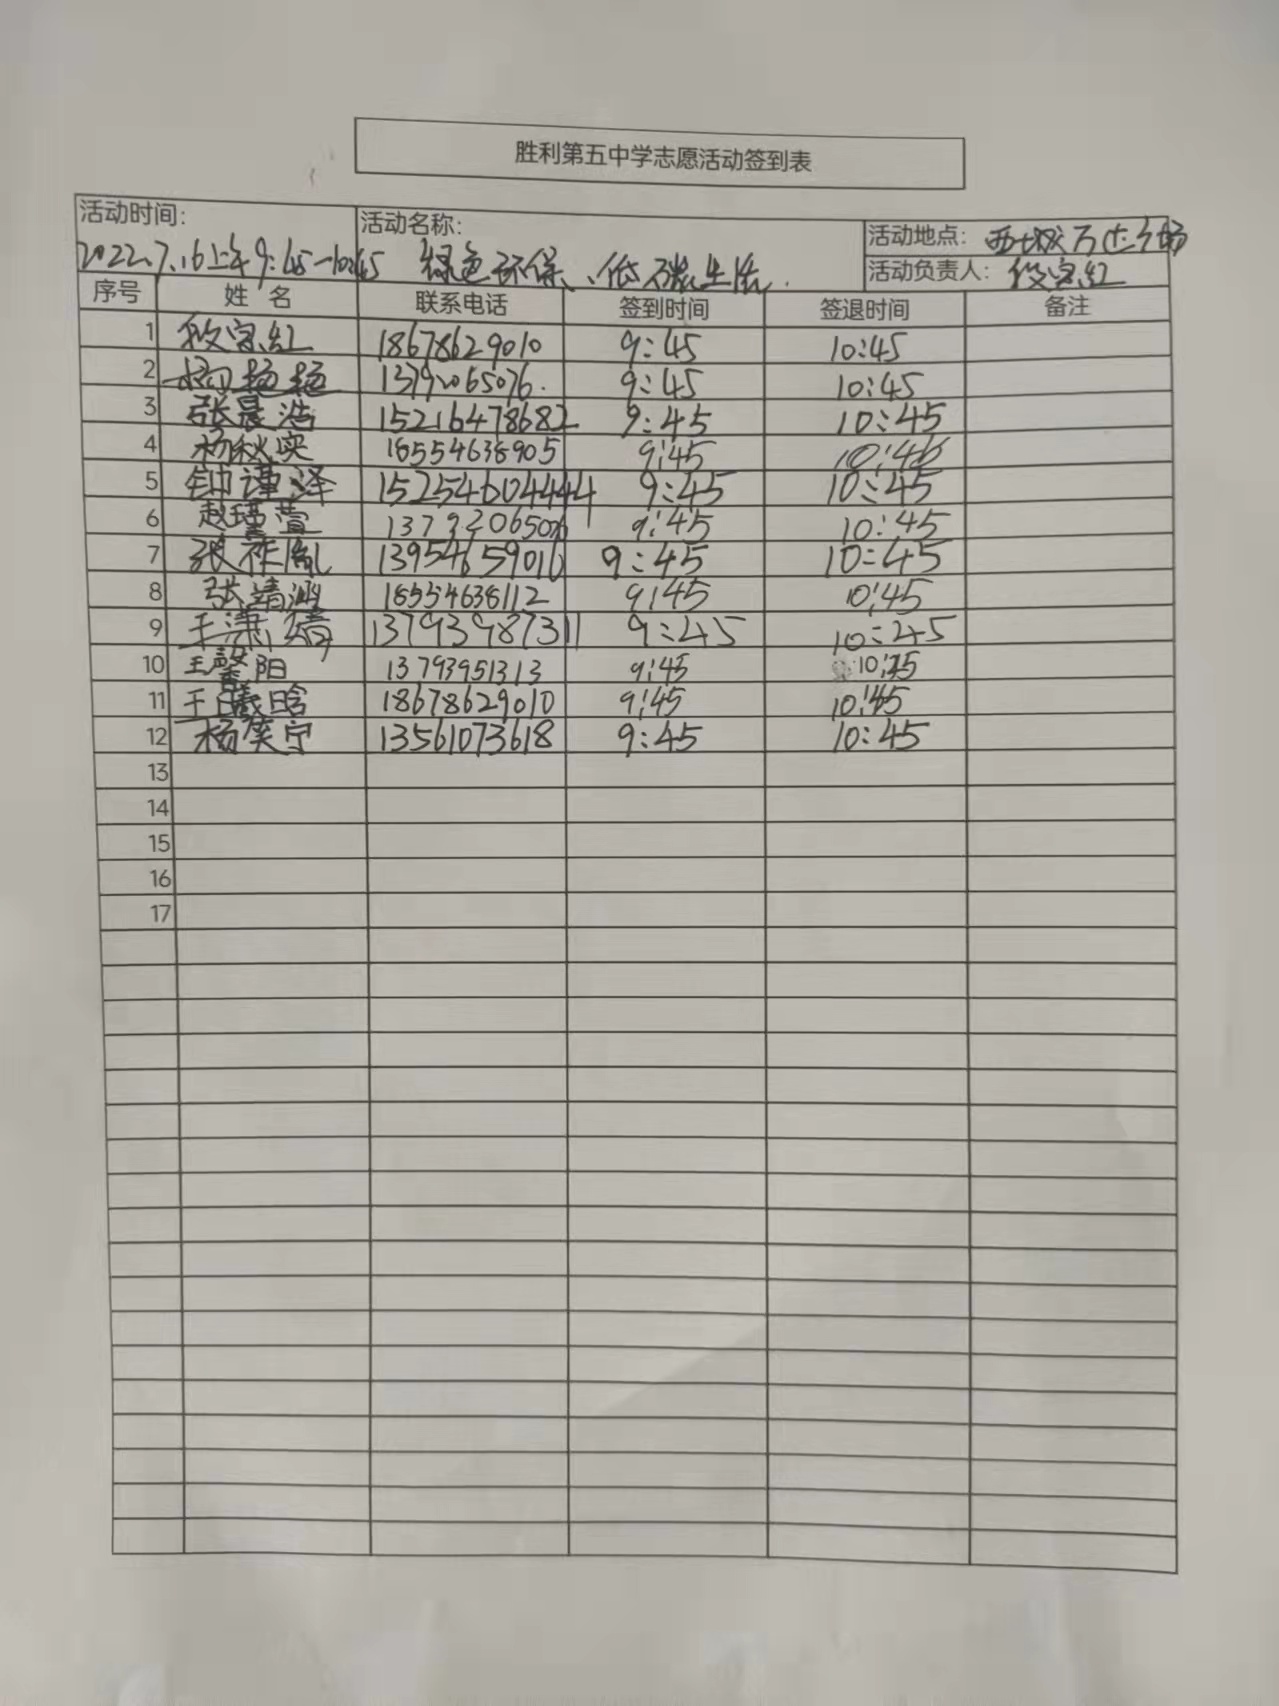 胜利第五中学志愿活动签到表
活动时间: 活动名称: 活动地点: 西城万达广场
2022.7.16上午9:45-10:45 绿色环保、低碳生活. 活动负责人: 段宝红
序号 姓 名 联系电话 签到时间 签退时间 备注
1 段宝红 18678629010 9:45 10:45
2 杨艳艳 13792065076. 9:45 10:45
3 张晨浩 15216478682 9:45 10:45
4 杨秋实 18554638905 9:45 10:45
5 钟谨泽 15254604444 9:45 10:45
6 赵瑾萱 13792065076 9:45 10:45
7 张祚胤 13954659016 9:45 10:45
8 张清涵 18554638112 9:45 10:45
9 王潇婧 13793987311 9:45 10:45
10 王馨阳 13793951313 9:45 10:45
11 王曦晗 18678629010 9:45 10:45
12 杨笑宁 13561073618 9:45 10:45
13
14
15
16
17